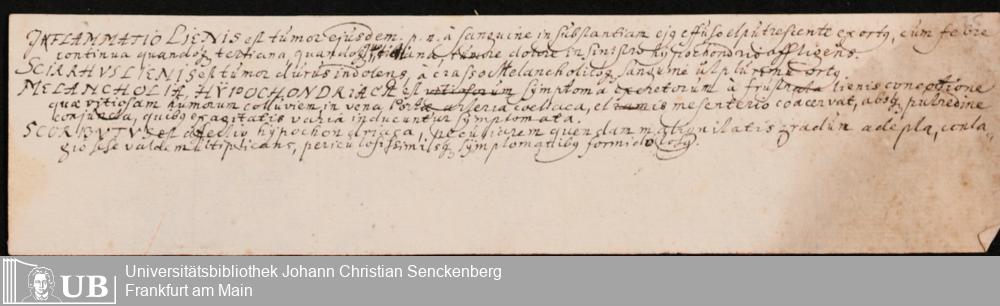 INFLAMMATIO LIENIS est tumor ejusdem. p. n. à sanguine in substantiam ejq effuso et putrescente exortq, cum febre
continua quandoq tertiana, quandoq tumore dolore in sinistro hypochondrio affligens.
SCIRRHVS LIENIS est tumor durus indolens, à crasso Melancholicoq sanguine ut plurimu ortq.
MELANCHOLIA HYPOCHONDRIACA est symptoma à frustrata lienis conceptione
quæ vitiosam humorum colluviem, in vena Portæ arteria coeliaca, et mesenterio coacervat, absq putredine
conjuncta, quibq exagitatis varia inducuntur symptomata.
SCORBVTVS est affectio hypochondriaca, peculiarem quendam malignitatis gradum adepta, conta=
gio sese valde multiplicans, periculosissimisq symptomatibq formidolosq.
Universitätsbibliothek Johann Christian Senckenberg
Frankfurt am Main
UB